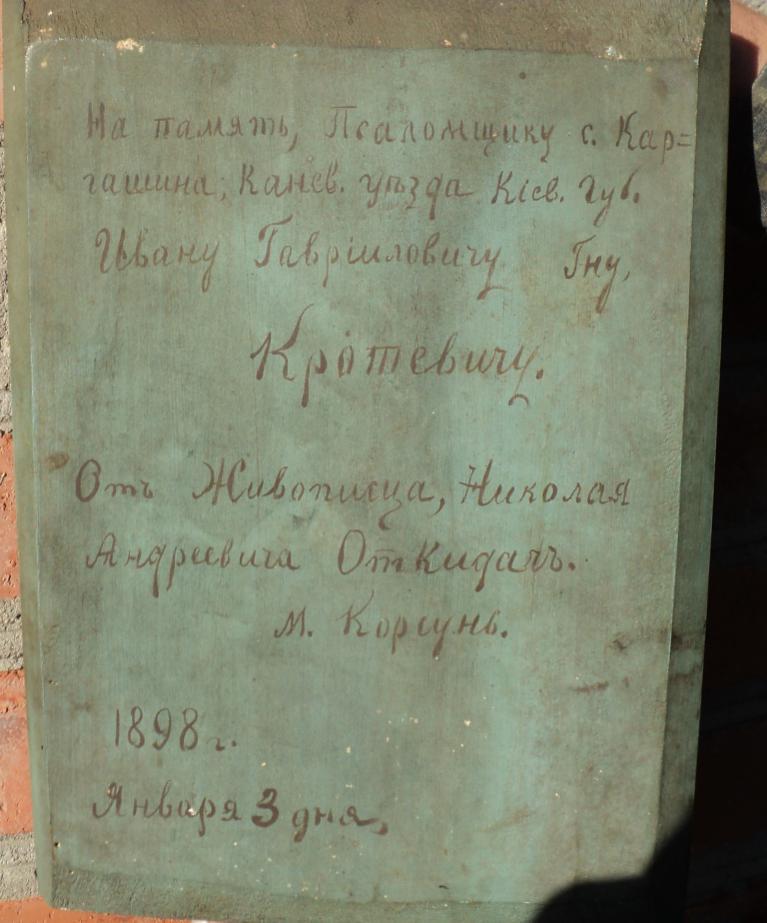 На память, Псаломщику с. Кар=
гашина, Канев. уѣзда Кіев. Губ.
Ивану Гавріиловичу Гну,
Кротевичу.
Отъ Живописца, Николая
Андреевича ОтКидачъ.
м. Корсунь.
1898 г.
Января 3 дня,